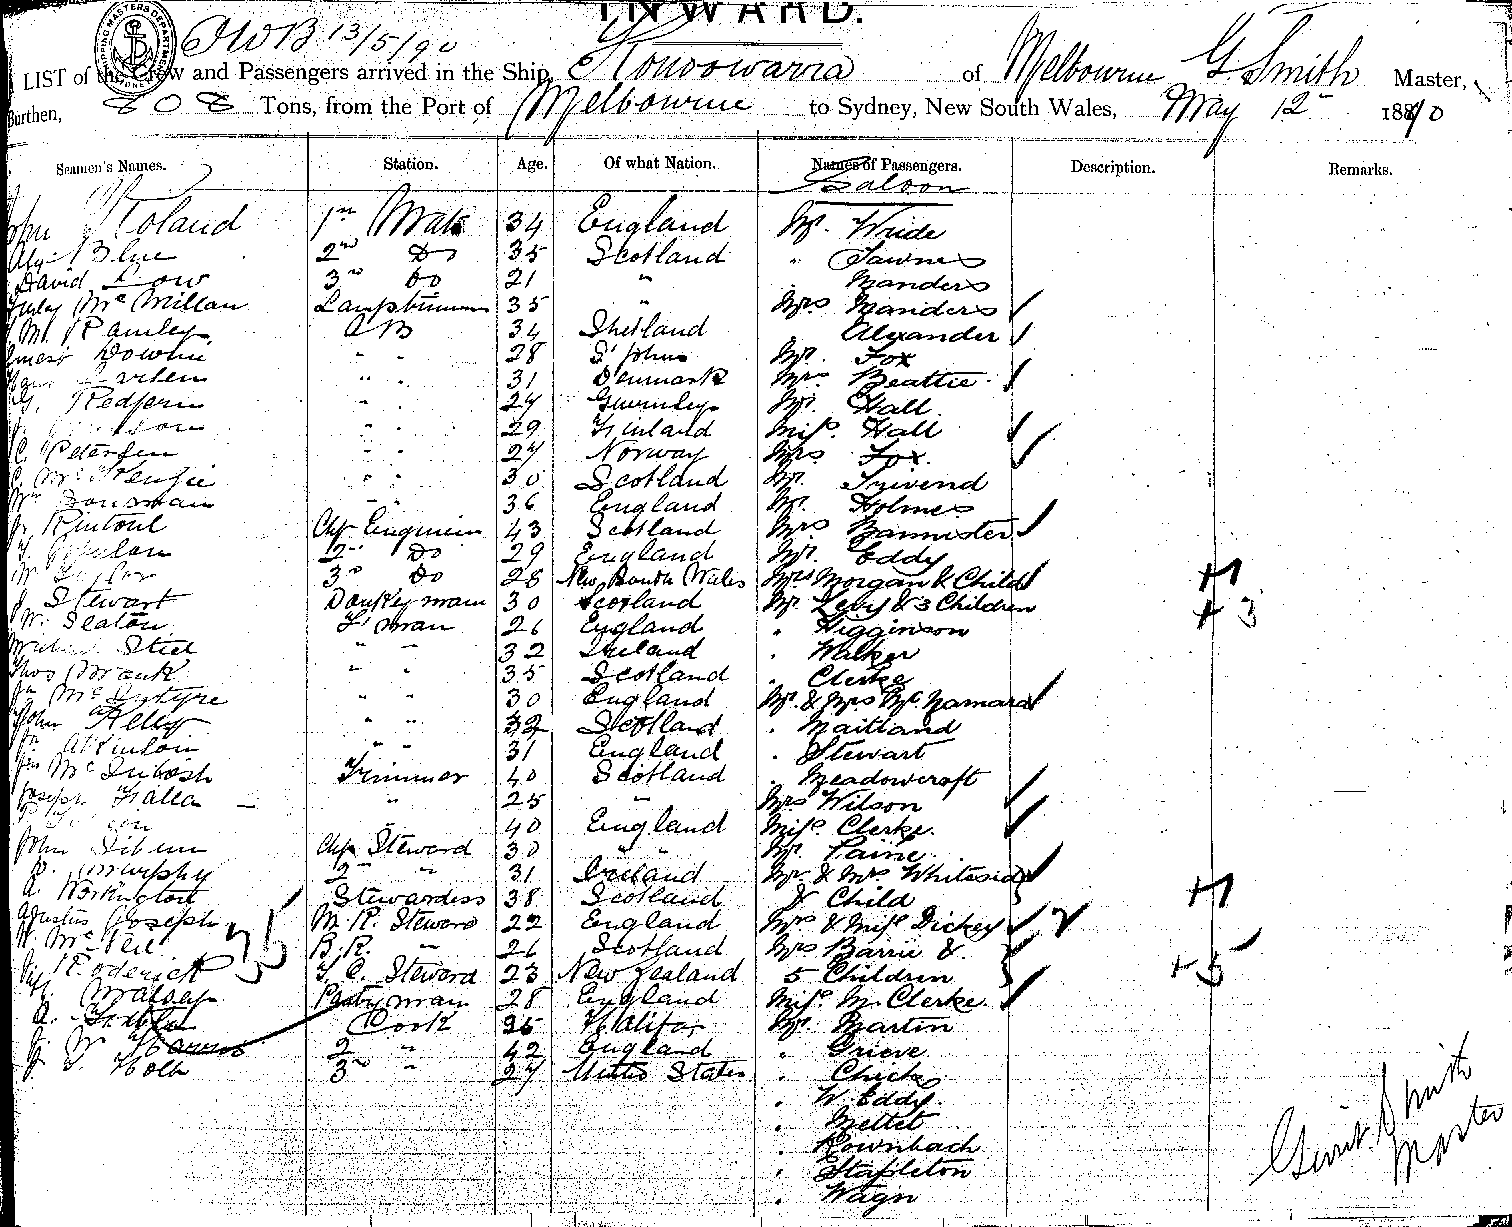 INWARD.
SHIPPING MASTERS DEPARTMENT
JWB 13/5/90
LIST of the Crew and Passengers arrived in the Ship, Konoowarra of Melbourne G Smith Master,
Burthen, 808 Tons, from the Port of Melbourne to Sydney, New South Wales, May 12 1890
Seamen's Names. Station. Age. Of what Nation. Names of Passengers. Description. Remarks.
Saloon
John Toland 1st Mate 34 England Mr. Wride
Blue 2nd Do 35 Scotland " Fawnes
David Low 3rd Do 21 " Manders
Mc Millan Lamptrimmer 35 " Mrs Manders
Ramley AB 34 Shetland Alexander
Ernest Downie " " 28 St Johns Mr. Fox
Larsen " " 31 Denmark Mrs Beattie
Redfern " " 27 Guernsey Mr. Hall
" " 29 Finland Miss Hall
C. Petersen " " 27 Norway Mrs Fox
C. McKenzie " " 30 Scotland Mr. Trivend
Wm " " 36 England Mr. Holmes
Rintoul Chf Engineer 43 Scotland Mrs Bannister
2nd Do 29 England Mr. Eddy
W. Taylor 3rd Do 28 New South Wales Mrs Morgan & Child +1
J. Stewart Donkeyman 30 Scotland Mr. Levy & 3 Children + 3
W. Seaton F'man 26 England " Higginson
Steel " " 32 Ireland " Walker
Thos " " 35 Scotland " Clerke
Jn McIntyre " " 30 England Mr. & Mrs McNamara
John Kelly " " 32 Scotland " Maitland
Jn Atkinson " " 31 England " Stewart
Jas McIntosh Trimmer 40 Scotland " Meadowcroft
Joseph Falla " 25 " Mrs Wilson
" 40 England Miss Clerke
John Chf Steward 30 " Mr. Paine
P. Murphy 2nd " 31 Ireland Mr & Mrs Whiteside
A. Workington Stewardess 38 Scotland & Child +1
Agustus Joseph M. R. Steward 22 England Mrs & Miss Dickey 2
McNeil B. R. " 26 Scotland Mrs Barrie &
35
Roderick F. C. Steward 23 New Zealand 5 Children + 5
Pantryman 28 England Miss M. Clerke
A. Cook 25 Halifax Mr. Martin
J. W. Harris 2nd " 42 England " Grieve
Holt 3rd " 27 United States " Chicks
" W. Eddy
" Mettet
" Rownbach
" Stapleton
" Wagn
Gerrit Smith
Master